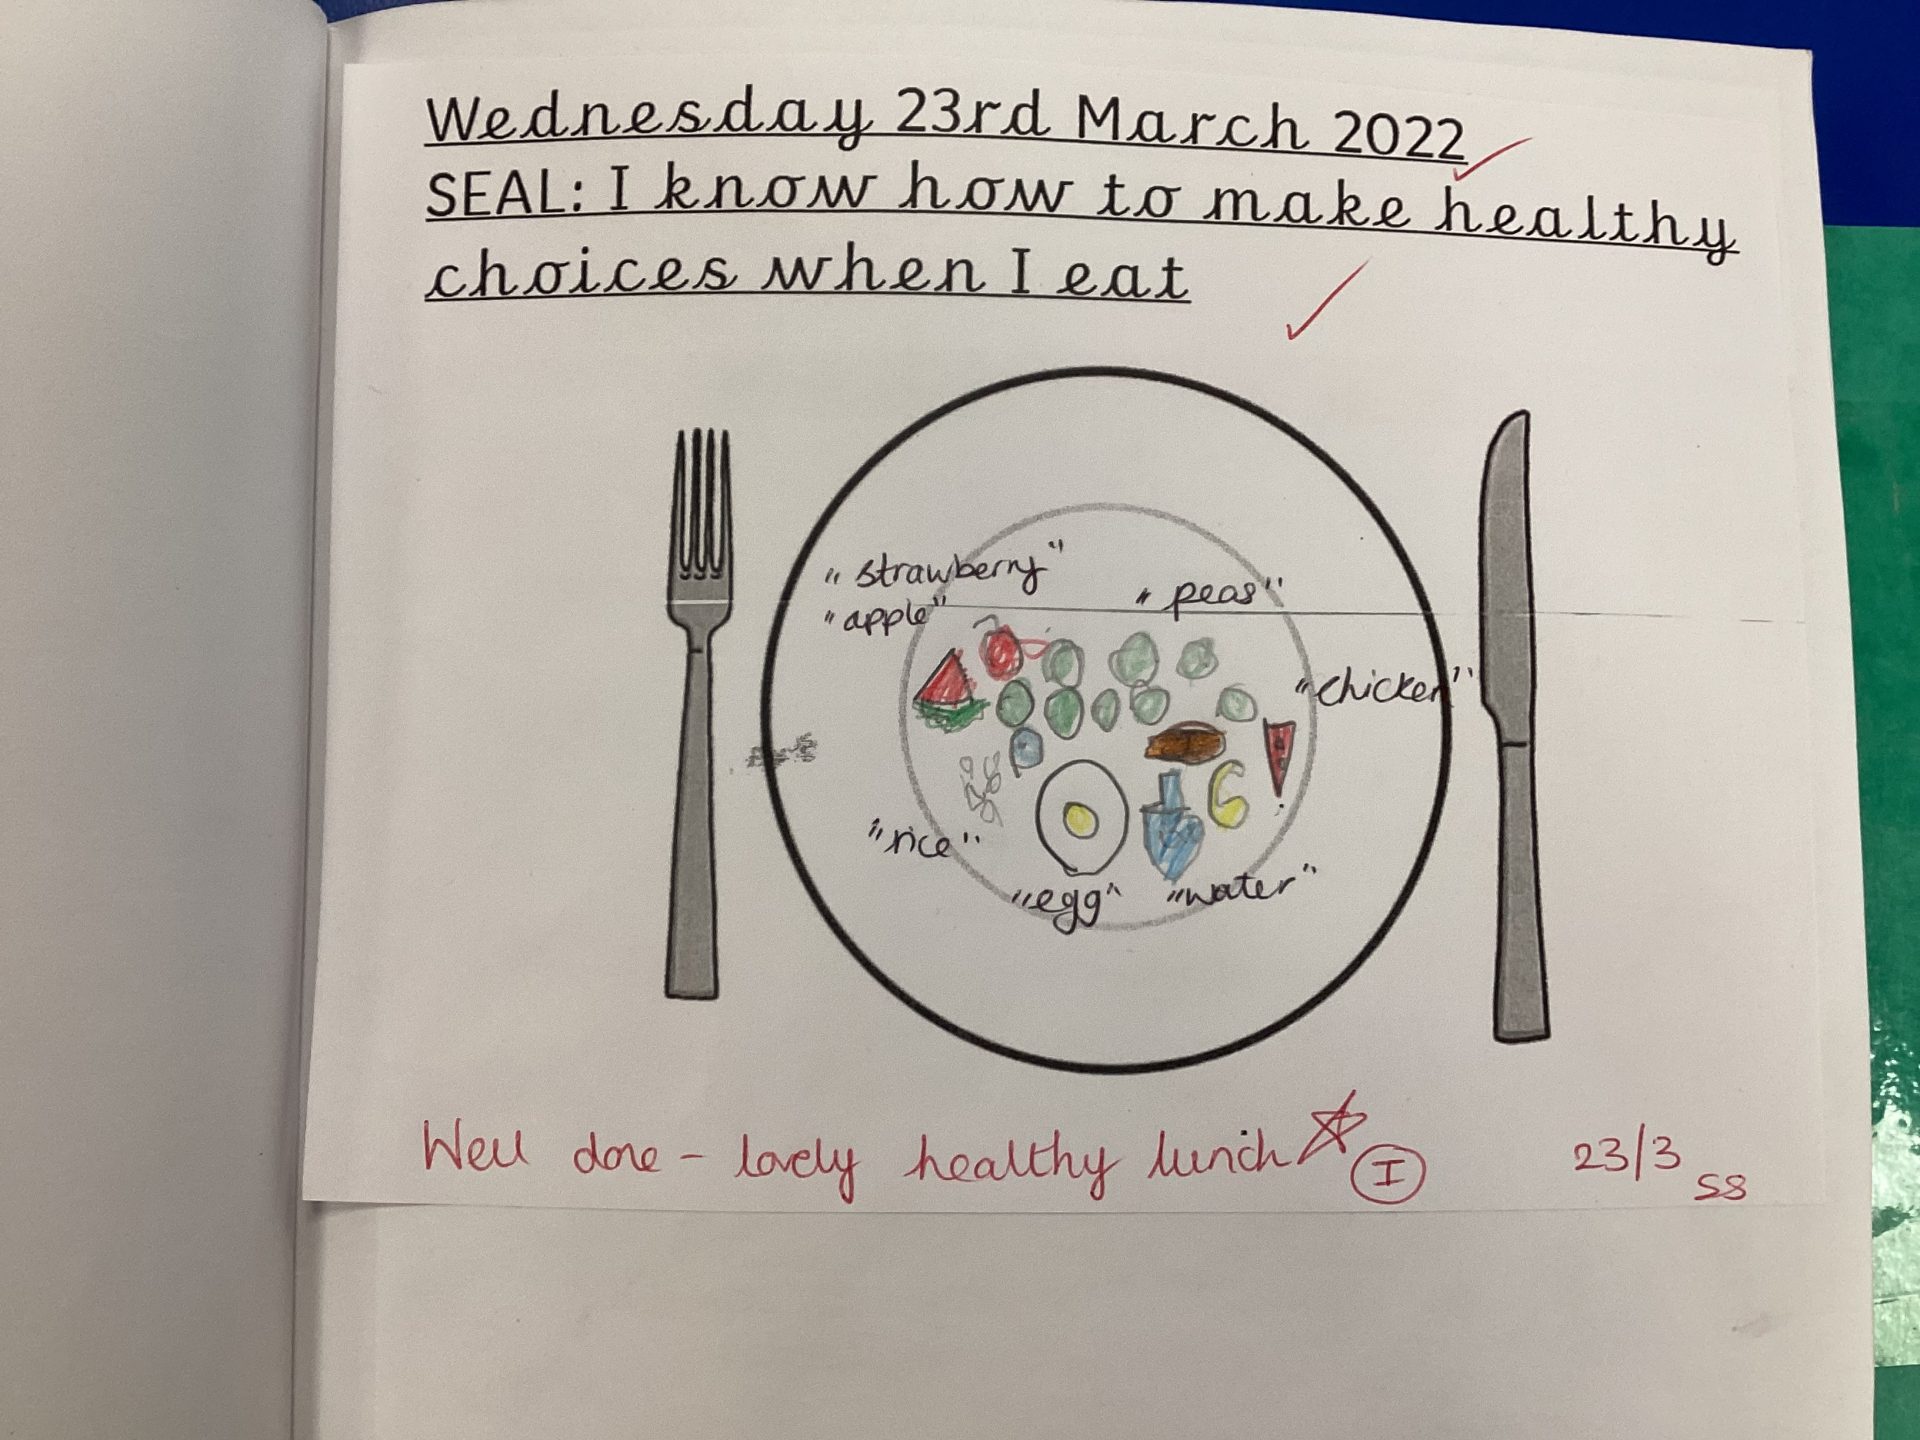 Wednesday 23rd March 2022
SEAL: I know how to make healthy
choices when I eat
"strawberry"
"apple"
"peas"
"chicken"
"rice"
"egg"
"water"
Well done - lovely healthy lunch
I
23/3
SS